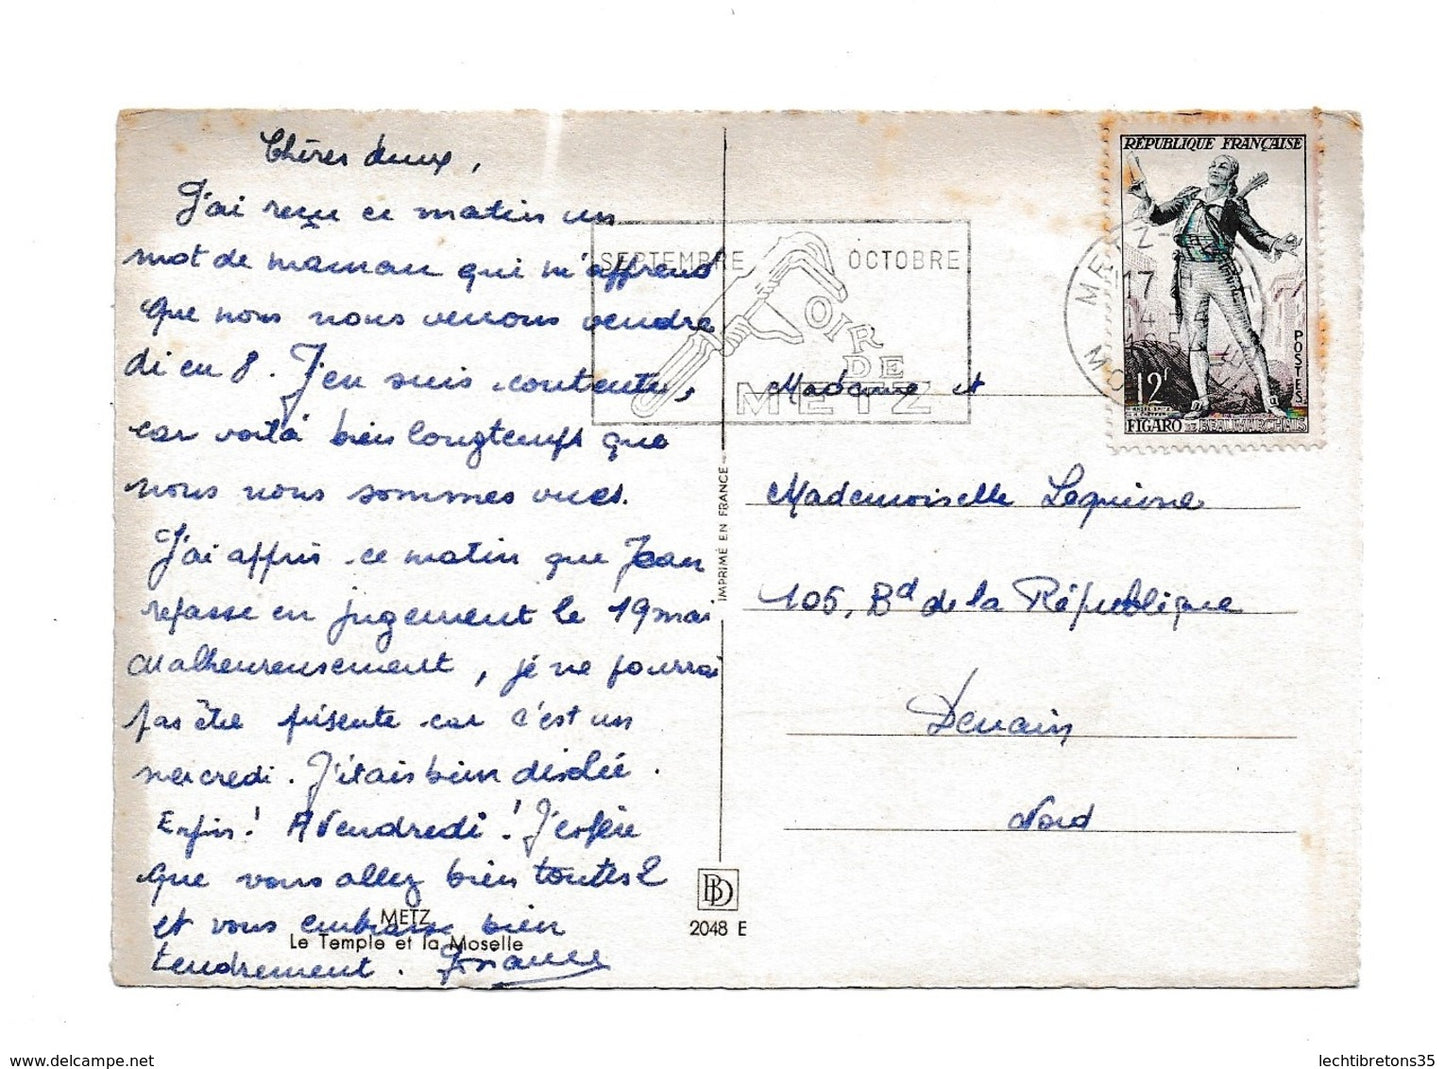 Chères deux,
J'ai reçu ce matin un
mot de maman qui m'apprend
que nous nous verrons vendre
di en 8. J'en suis contente,
car voilà bien longtemps que
nous nous sommes vues.
J'ai appris ce matin que Jean
repasse en jugement le 19 mai
Malheureusement, je ne pourrai
pas être présente car c'est un
mercredi. J'étais bien désolée.
Enfin! A Vendredi! J'espère
que vous allez bien toutes 2
et vous embrasse bien
tendrement.
METZ
Le Temple et la Moselle
IMPRIMÉ EN FRANCE
BD
2048 E
SEPTEMBRE OCTOBRE
FOIR DE
METZ
RÉPUBLIQUE FRANÇAISE
POSTES
12F
FIGARO DE BEAUMARCHAIS
METZ
17 H
14
Madame et
Mademoiselle
105, Bd de la République
Denain
Nord
www.delcampe.net
lechtibretons35